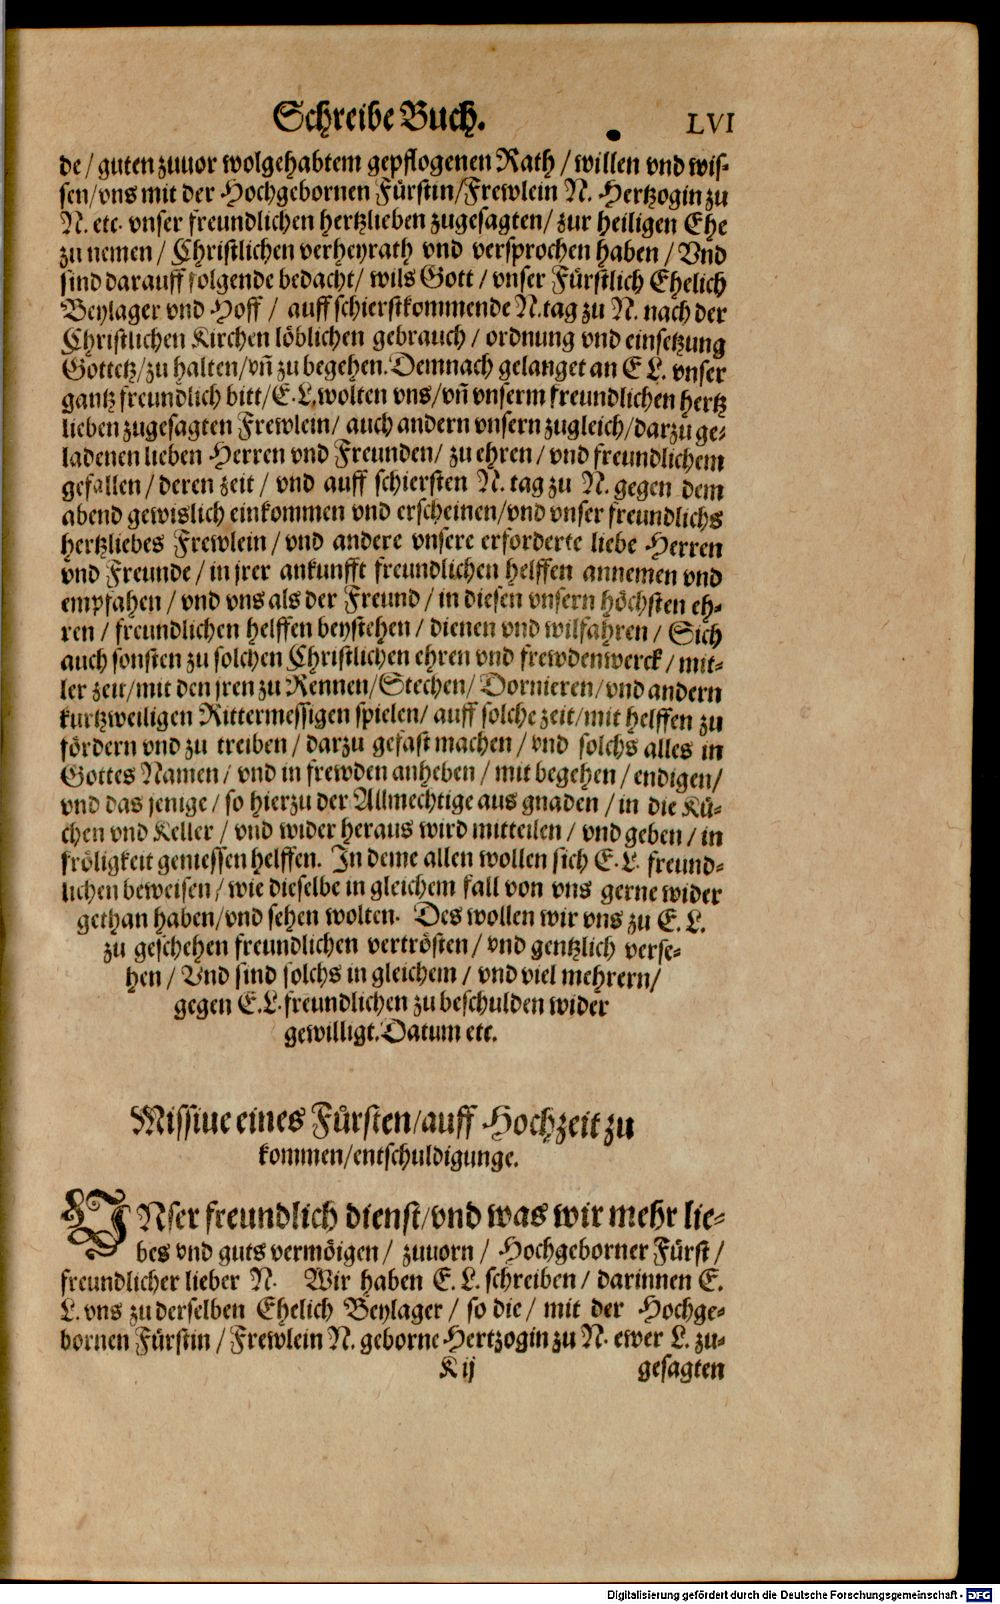 Schreibe Buch. LVI
de / guten zuuor wolgehabtem gepflogenen Rath / willen vnd wis-
sen / vns mit der Hochgebornen Fürstin / Frewlein N. Hertzogin zu
N. etc. vnser freundlichen hertzlieben zugesagten / zur heiligen Ehe
zu nemen / Christlichen verheyrath vnd versprochen haben / Vnd
sind darauff folgende bedacht / wils Gott / vnser Fürstlich Ehelich
Beylager vnd Hoff / auff schierstkommende N. tag zu N. nach der
Christlichen Kirchen löblichen gebrauch / ordnung vnd einsetzung
Gottetz / zu halten / vn̄ zu begehen. Demnach gelanget an E L. vnser
gantz freundlich bitt / E. L. wolten vns / vn̄ vnserm freundlichen hertz
lieben zugesagten Frewlein / auch andern vnsern zugleich / darzu ge-
ladenen lieben Herren vnd Freunden / zu ehren / vnd freundlichem
gefallen / deren zeit / vnd auff schiersten N. tag zu N. gegen dem
abend gewislich einkommen vnd erscheinen / vnd vnser freundlichs
hertzliebes Frewlein / vnd andere vnsere erforderte liebe Herren
vnd Freunde / in jrer ankunfft freundlichen helffen annemen vnd
empfahen / vnd vns als der Freund / in diesen vnsern höchsten eh-
ren / freundlichen helffen beystehen / dienen vnd wilfahren / Sich
auch sonsten zu solchen Christlichen ehren vnd frewdenwerck / mit-
ler zeit / mit den jren zu Rennen / Stechen / Dornieren / vnd andern
kurtzweiligen Rittermessigen spielen / auff solche zeit / mit helffen zu
fördern vnd zu treiben / darzu gefast machen / vnd solchs alles in
Gottes Namen / vnd in frewden anheben / mit begehen / endigen /
vnd das jenige / so hierzu der Allmechtige aus gnaden / in die Kü-
chen vnd Keller / vnd wider heraus wird mitteilen / vnd geben / in
fröligkeit geniessen helffen. In deme allen wollen sich E. L. freund-
lichen beweisen / wie dieselbe in gleichem fall von vns gerne wider
gethan haben / vnd sehen wolten. Des wollen wir vns zu E. L.
zu geschehen freundlichen vertrösten / vnd gentzlich verse-
hen / Vnd sind solchs in gleichem / vnd viel mehrern /
gegen E. L. freundlichen zu beschulden wider
gewilligt. Datum etc.
Missiue eines Fürsten / auff Hochzeit zu
kommen / entschuldigunge.
VNser freundlich dienst / vnd was wir mehr lie-
bes vnd guts vermöigen / zuuorn / Hochgeborner Fürst /
freundlicher lieber N. Wir haben E. L. schreiben / darinnen E.
L. vns zu derselben Ehelich Beylager / so die / mit der Hochge-
bornen Fürstin / Frewlein N. geborne Hertzogin zu N. ewer L. zu-
K ij gesagten
Digitalisierung gefördert durch die Deutsche Forschungsgemeinschaft - DFG